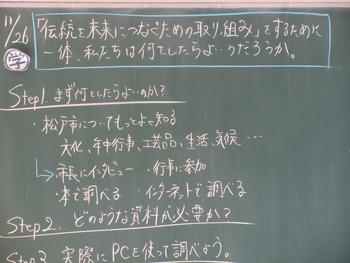 11/26
学
「伝統を未来につなぐための取り組み」をするために
一体、私たちは何をしたらよいのだろうか。
Step1. まず何をしたらよいのか?
・松戸市についてもっとよく知る
文化、年中行事、工芸品、生活、気候…
↳市民にインタビュー ・行事に参加
・本で調べる ・インターネットで調べる
Step2. どのような資料が必要か?
Step3. 実際にPCを使って調べよう。